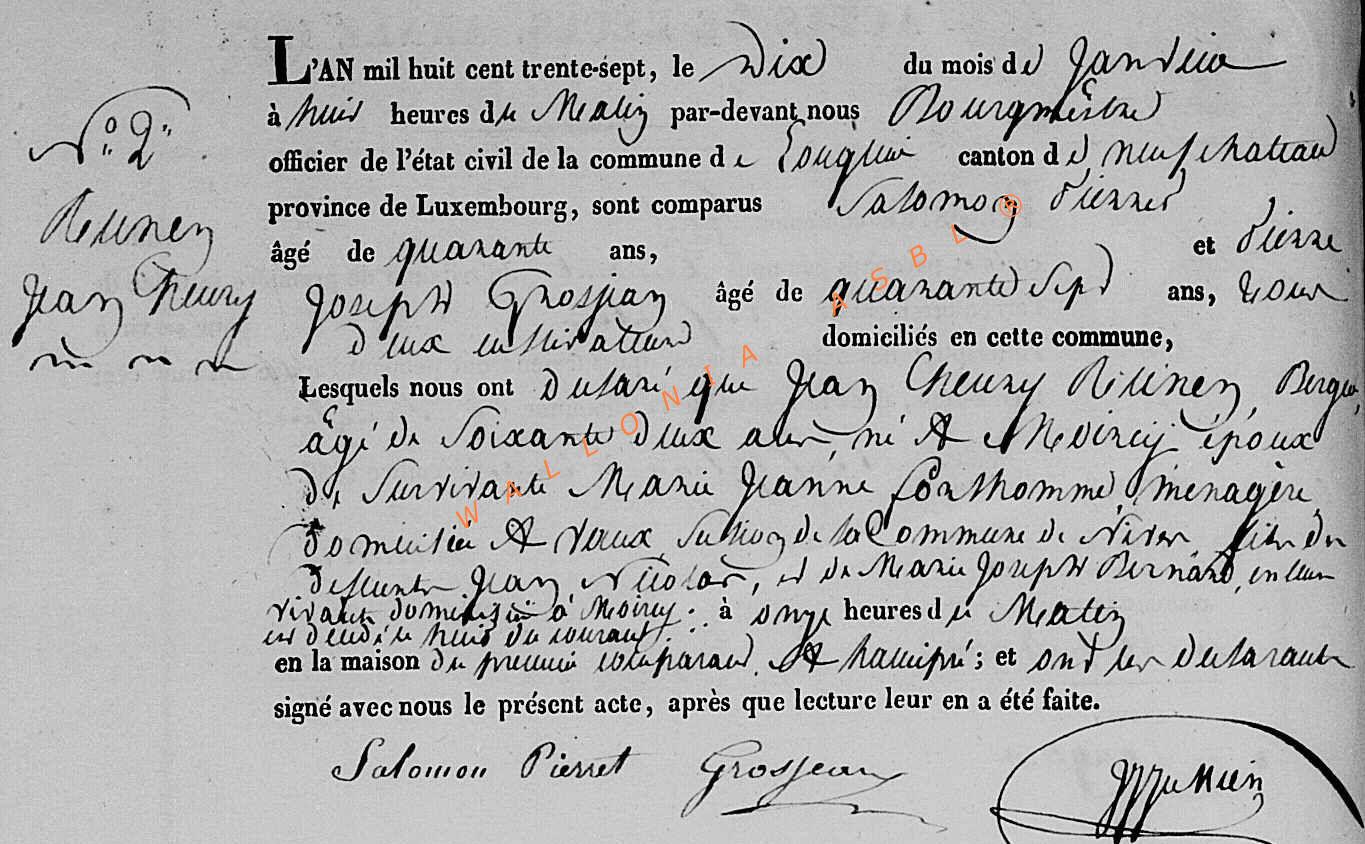 N.° 2
Reunen
Jean Theury
L'AN mil huit cent trente-sept, le Dix du mois de Janvier
à huit heures du Matin par-devant nous Bourgmestre
officier de l'état civil de la commune de Longlier canton de neufchateau
province de Luxembourg, sont comparus Salomon Pierret
âgé de quarante ans, et Pierre
Joseph Grosjean âgé de quarante Sept ans, tous
deux cultivateurs domiciliés en cette commune,
Lesquels nous ont Déclaré que Jean Theury Reunen, Berger,
âgé de Soixante deux ans, né A Moircy époux
de Survivante Marie Jeanne Ponthomme ménagère
domiciliée A vaux, Section de la Commune de
Jean Nicolas, et de Marie Joseph Bernard, en leur
vivant domiciliés à Moircy. à onze heures du Matin
est décédé le huit du courant.
en la maison du premier comparant A hamipré; et ont les déclarants
signé avec nous le présent acte, après que lecture leur en a été faite.
Salomon Pierret Grosjean
WALLONIA ASBL ®